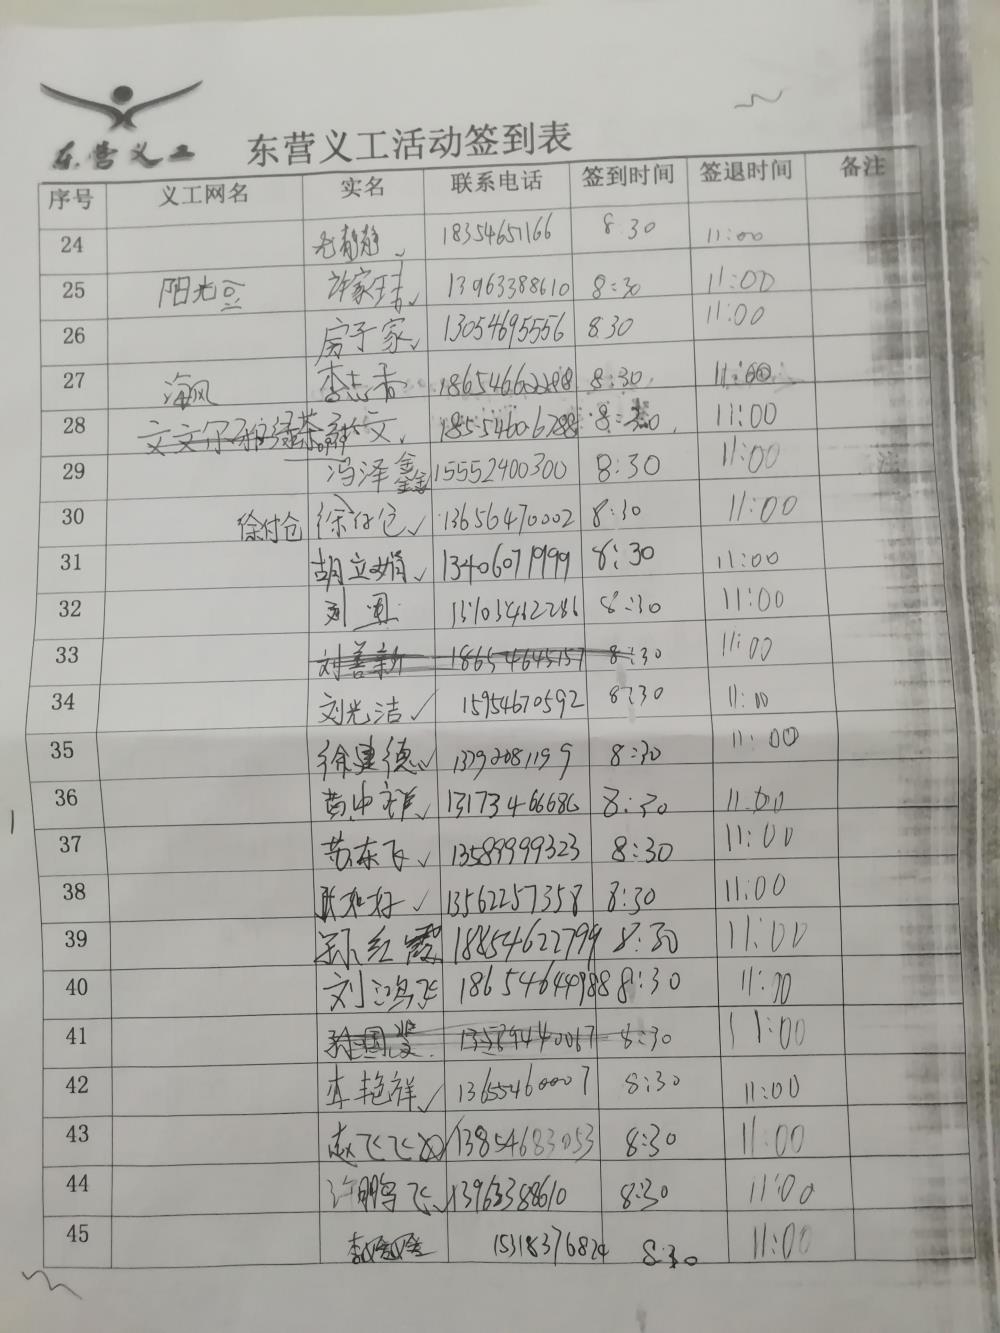 东营义工
东营义工活动签到表
序号 义工网名 实名 联系电话 签到时间 签退时间 备注
24 静静 18354651166 8:30 11:00
25 阳光豆 许家玮 13963388610 8:30 11:00
26 房子家 13054695556 8:30 11:00
27 海风 李志青 18654662288 8:30 11:00
28 文文尔雅绿茶 文 18554606788 8:30 11:00
29 冯泽鑫 15552400300 8:30 11:00
30 徐付仓 徐付仓 13656470002 8:30 11:00
31 胡立娟 13406071999 8:30 11:00
32 刘 8:30 11:00
33 刘善新 18654645157 8:30 11:00
34 刘光洁 15954670592 8:30 11:00
35 徐建德 13792081199 8:30 11:00
36 黄中祥 13173466686 8:30 11:00
37 苏东飞 13589999323 8:30 11:00
38 张如好 13562257358 8:30 11:00
39 孙红霞 18854622799 8:30 11:00
40 刘鸿飞 18654644988 8:30 11:00
41 13589440067 8:30 11:00
42 李艳祥 13655460007 8:30 11:00
43 赵飞飞 13854683053 8:30 11:00
44 许鹏飞 13963388610 8:30 11:00
45 李 15318376824 8:30 11:00